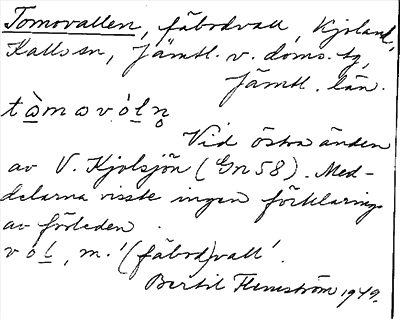 Tomovallen, fäbodvall, Kjoland,
Kall sn, Jämtl. v. doms. tg,
Jämtl. län.
tòmavòln̥
Vid östra änden
av V. Kjolsjön (Gn 58). Med-
delarna visste ingen förklaring
av förleden.
vòl, m. '(fäbod)vall'.
Bertil Flemström 1949.